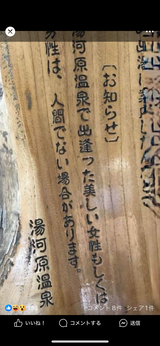 〔お知らせ〕
湯河原温泉で出逢った美しい女性もしくは
男性は、人間でない場合があります。
湯河原温泉
コメント8件・シェア1件
いいね！
コメントする
送信